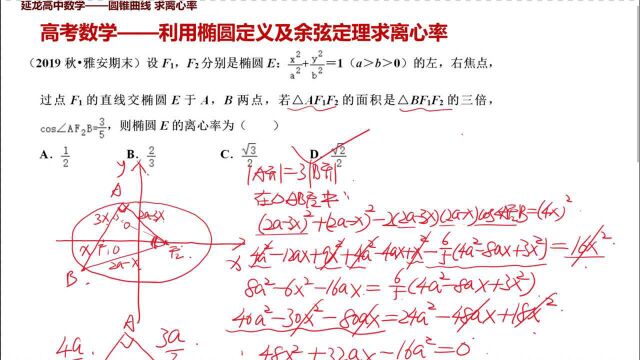 延龙高中数学——圆锥曲线 求离心率
高考数学——利用椭圆定义及余弦定理求离心率
（2019 秋•雅安期末）设 F₁，F₂ 分别是椭圆 E：x²/a²+y²/b²=1（a＞b＞0）的左，右焦点，
过点 F₁ 的直线交椭圆 E 于 A，B 两点，若△AF₁F₂ 的面积是△BF₁F₂ 的三倍，
cos∠AF₂B=3/5，则椭圆 E 的离心率为（　　）
A．1/2　B．2/3　C．√3/2　D．√2/2
y
A
3x 2a-3x
x F₁ 0 F₂ x
B 2a-x
|AF₁|=3|BF₁|
在△ABF₂中
(2a-3x)²+(2a-x)²-2(2a-3x)(2a-x)cos∠AF₂B=(4x)²
4a²-12ax+9x²+4a²-4ax+x²-6/5(4a²-8ax+3x²)=16x²
8a²-6x²-16ax=6/5(4a²-8ax+3x²)
40a²-30x²-80ax=24a²-48ax+18x²
48x²+32ax-16a²=0
A